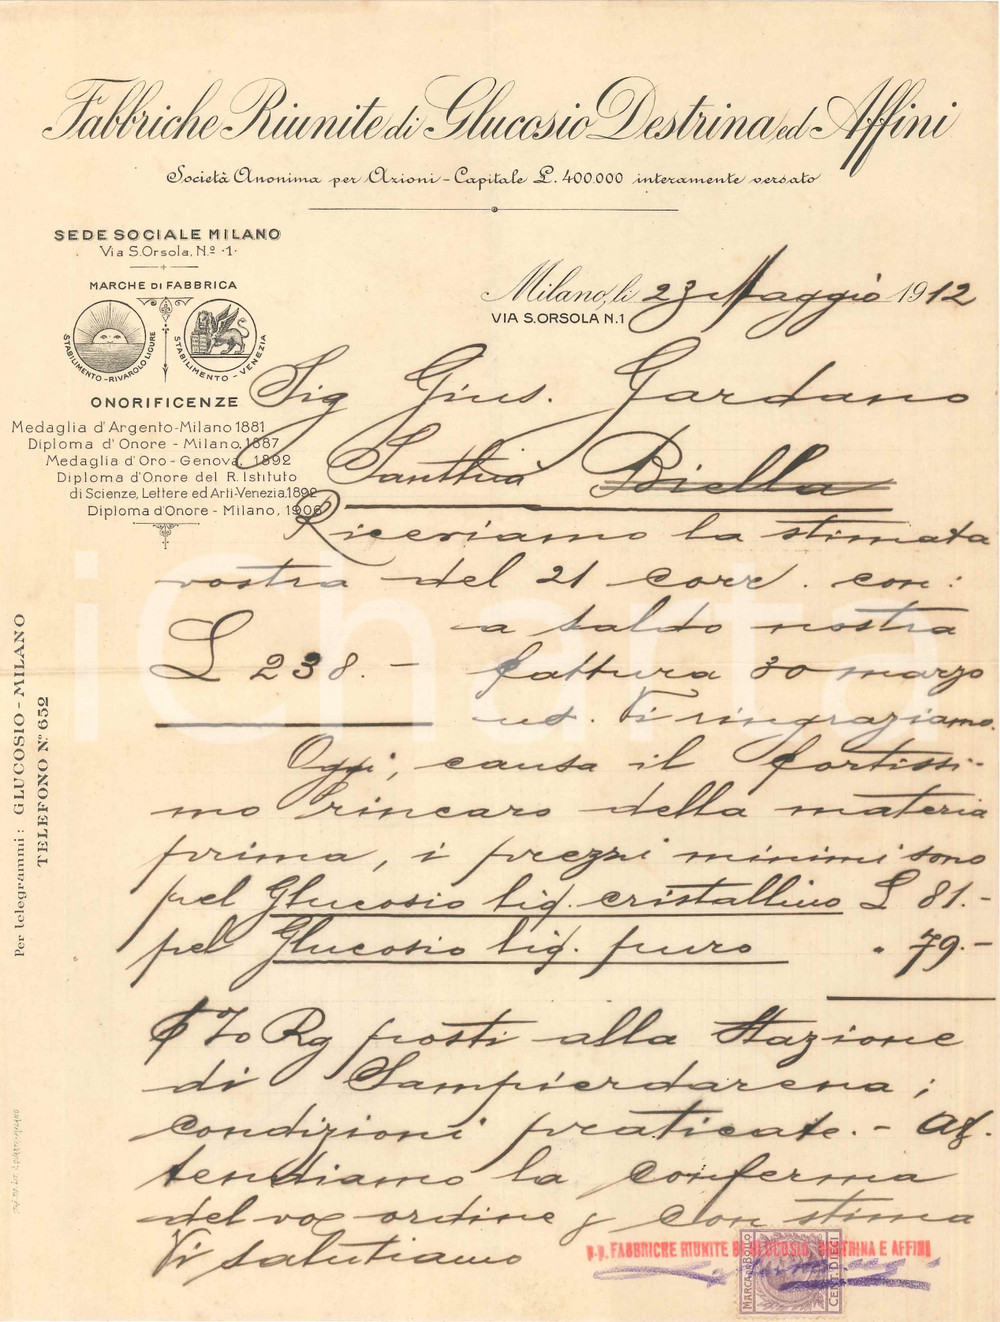 Fabbriche Riunite di Glucosio Destrina ed Affini
Società Anonima per Azioni - Capitale L. 400.000 interamente versato
SEDE SOCIALE MILANO
Via S. Orsola, N.º 1
MARCHE DI FABBRICA
STABILIMENTO - RIVAROLO LIGURE
STABILIMENTO - VENEZIA
ONORIFICENZE
Medaglia d'Argento - Milano 1881
Diploma d'Onore - Milano, 1887
Medaglia d'Oro - Genova, 1892
Diploma d'Onore del R. Istituto
di Scienze, Lettere ed Arti - Venezia, 1892
Diploma d'Onore - Milano, 1906
Per telegrammi: GLUCOSIO - MILANO
TELEFONO N.º 652
Milano, li 23 Maggio 1912
VIA S. ORSOLA N. 1
Sig Gius. Gardano
Santhià Biella
Riceviamo la stimata
vostra del 21 corr. con:
a saldo nostra
L 238. - fattura 30 marzo
us. Vi ringraziamo.
Oggi, causa il fortissi-
mo rincaro della materia
prima, i prezzi minimi sono
pel Glucosio liq. cristallino L 81.-
pel Glucosio liq. puro " 79.-
Kg posti alla Stazione
di Sampierdarena;
condizioni praticate. - At-
tendiamo la conferma
del vos ordine e con stima
Vi salutiamo
p.p. FABBRICHE RIUNITE DI GLUCOSIO, DESTRINA E AFFINI
MARCA DA BOLLO
CENT. DIECI
iCharta